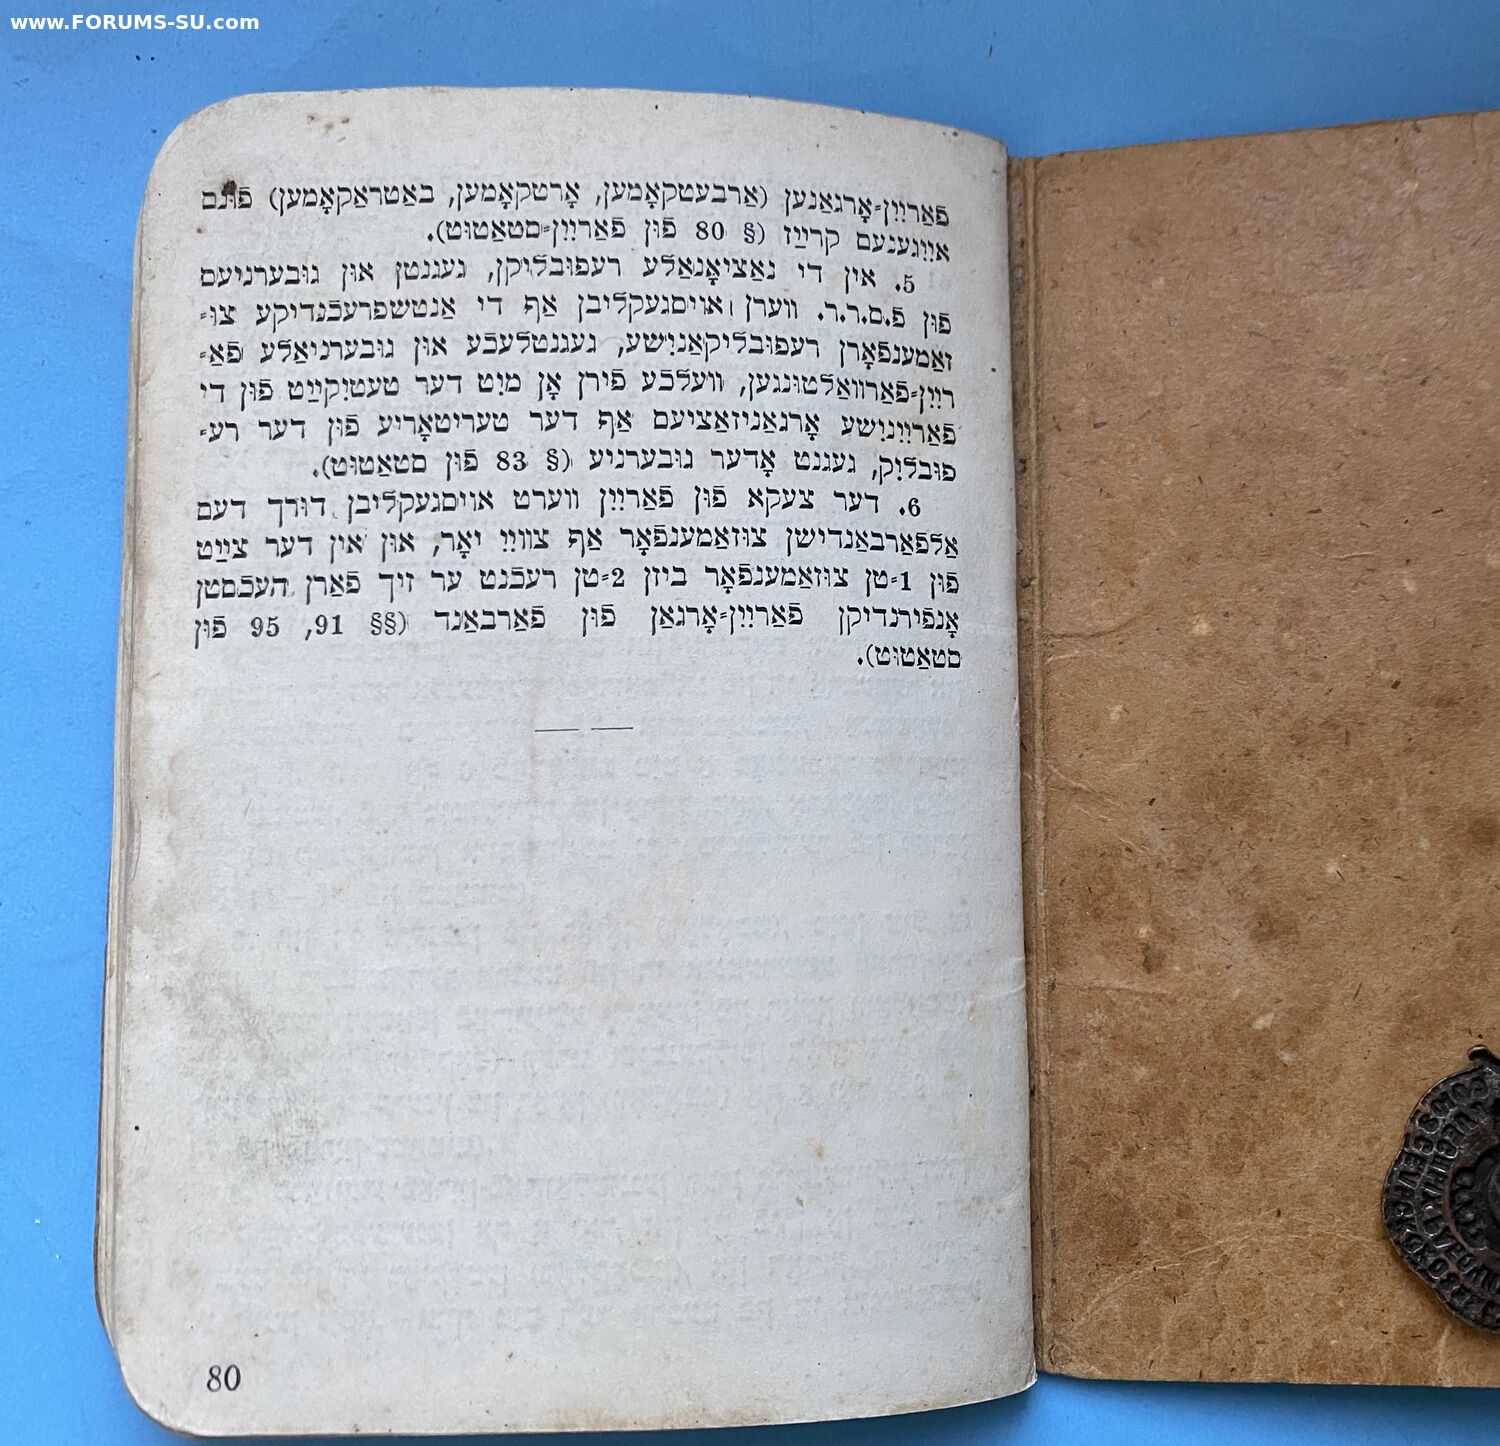 www.FORUMS-SU.com
פֿאַריײַן־אָרגאַנען (אַרבעטקאָמען, אָרטקאָמען, באַטראַקאָמען) פֿונם
אײגענעם קרײַז (§ 80 פֿון פֿאַרײן־סטאַטוט).
5. אין די נאַציאָנאַלע רעפּובליקן, געגנטן און גובערניעס
פֿון פֿ.ס.ר.ר. װערן אױסגעקליבן אַף די אַנטשפּרעכנדיקע צו־
זאַמענפֿאָרן רעפּובליקאַנישע, געגנטלעכע און גובערניאַלע פֿאַ־
רײן־פֿאַרװאַלטונגען, װעלכע פֿירן אָן מיט דער טעטיקײַט פֿון די
פֿאַרײנישע אָרגאַניזאַציעס אַף דער טעריטאָריע פֿון דער רע־
פּובליק, געגנט אָדער גובערניע (§ 83 פֿון סטאַטוט).
6. דער צעקא פֿון פֿאַרײן װערט אױסגעקליבן דורך דעם
אַלפֿאַרבאַנדישן צוזאַמענפֿאָר אַף צװײ יאָר, און אין דער צײַט
פֿון 1־טן צוזאַמענפֿאָר ביזן 2־טן רעכנט ער זיך פֿאַרן העכסטן
אָנפֿירנדיקן פֿאַרײן־אָרגאַן פֿון פֿאַרבאַנד (§§ 91, 95 פֿון
סטאַטוט).
80